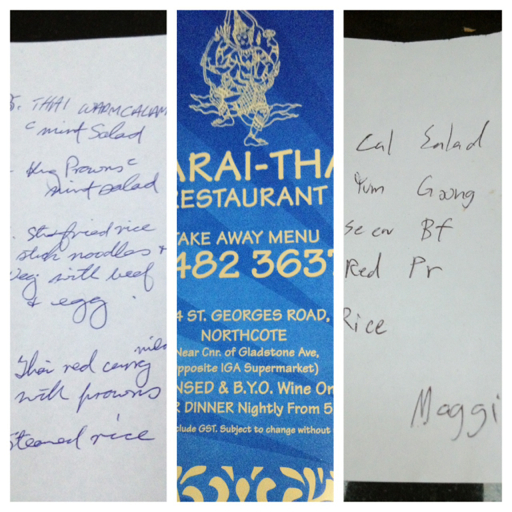 THAI WARM CALAM
c mint Salad
King Prawns c
mint salad
Stir fried rice
stick noodles +
Veg with beef
& egg.
mild
Thai red curry
with prawns
Steamed rice
ARAI-THA
RESTAURANT
TAKE AWAY MENU
482 3637
4 ST. GEORGES ROAD,
NORTHCOTE
Near Cnr. of Gladstone Ave,
pposite IGA Supermarket)
NSED & B.Y.O. Wine On
R DINNER Nightly From 5
clude GST. Subject to change without
Cal Salad
Yum Goong
Se ew Bf
Red Pr
Rice
Maggi